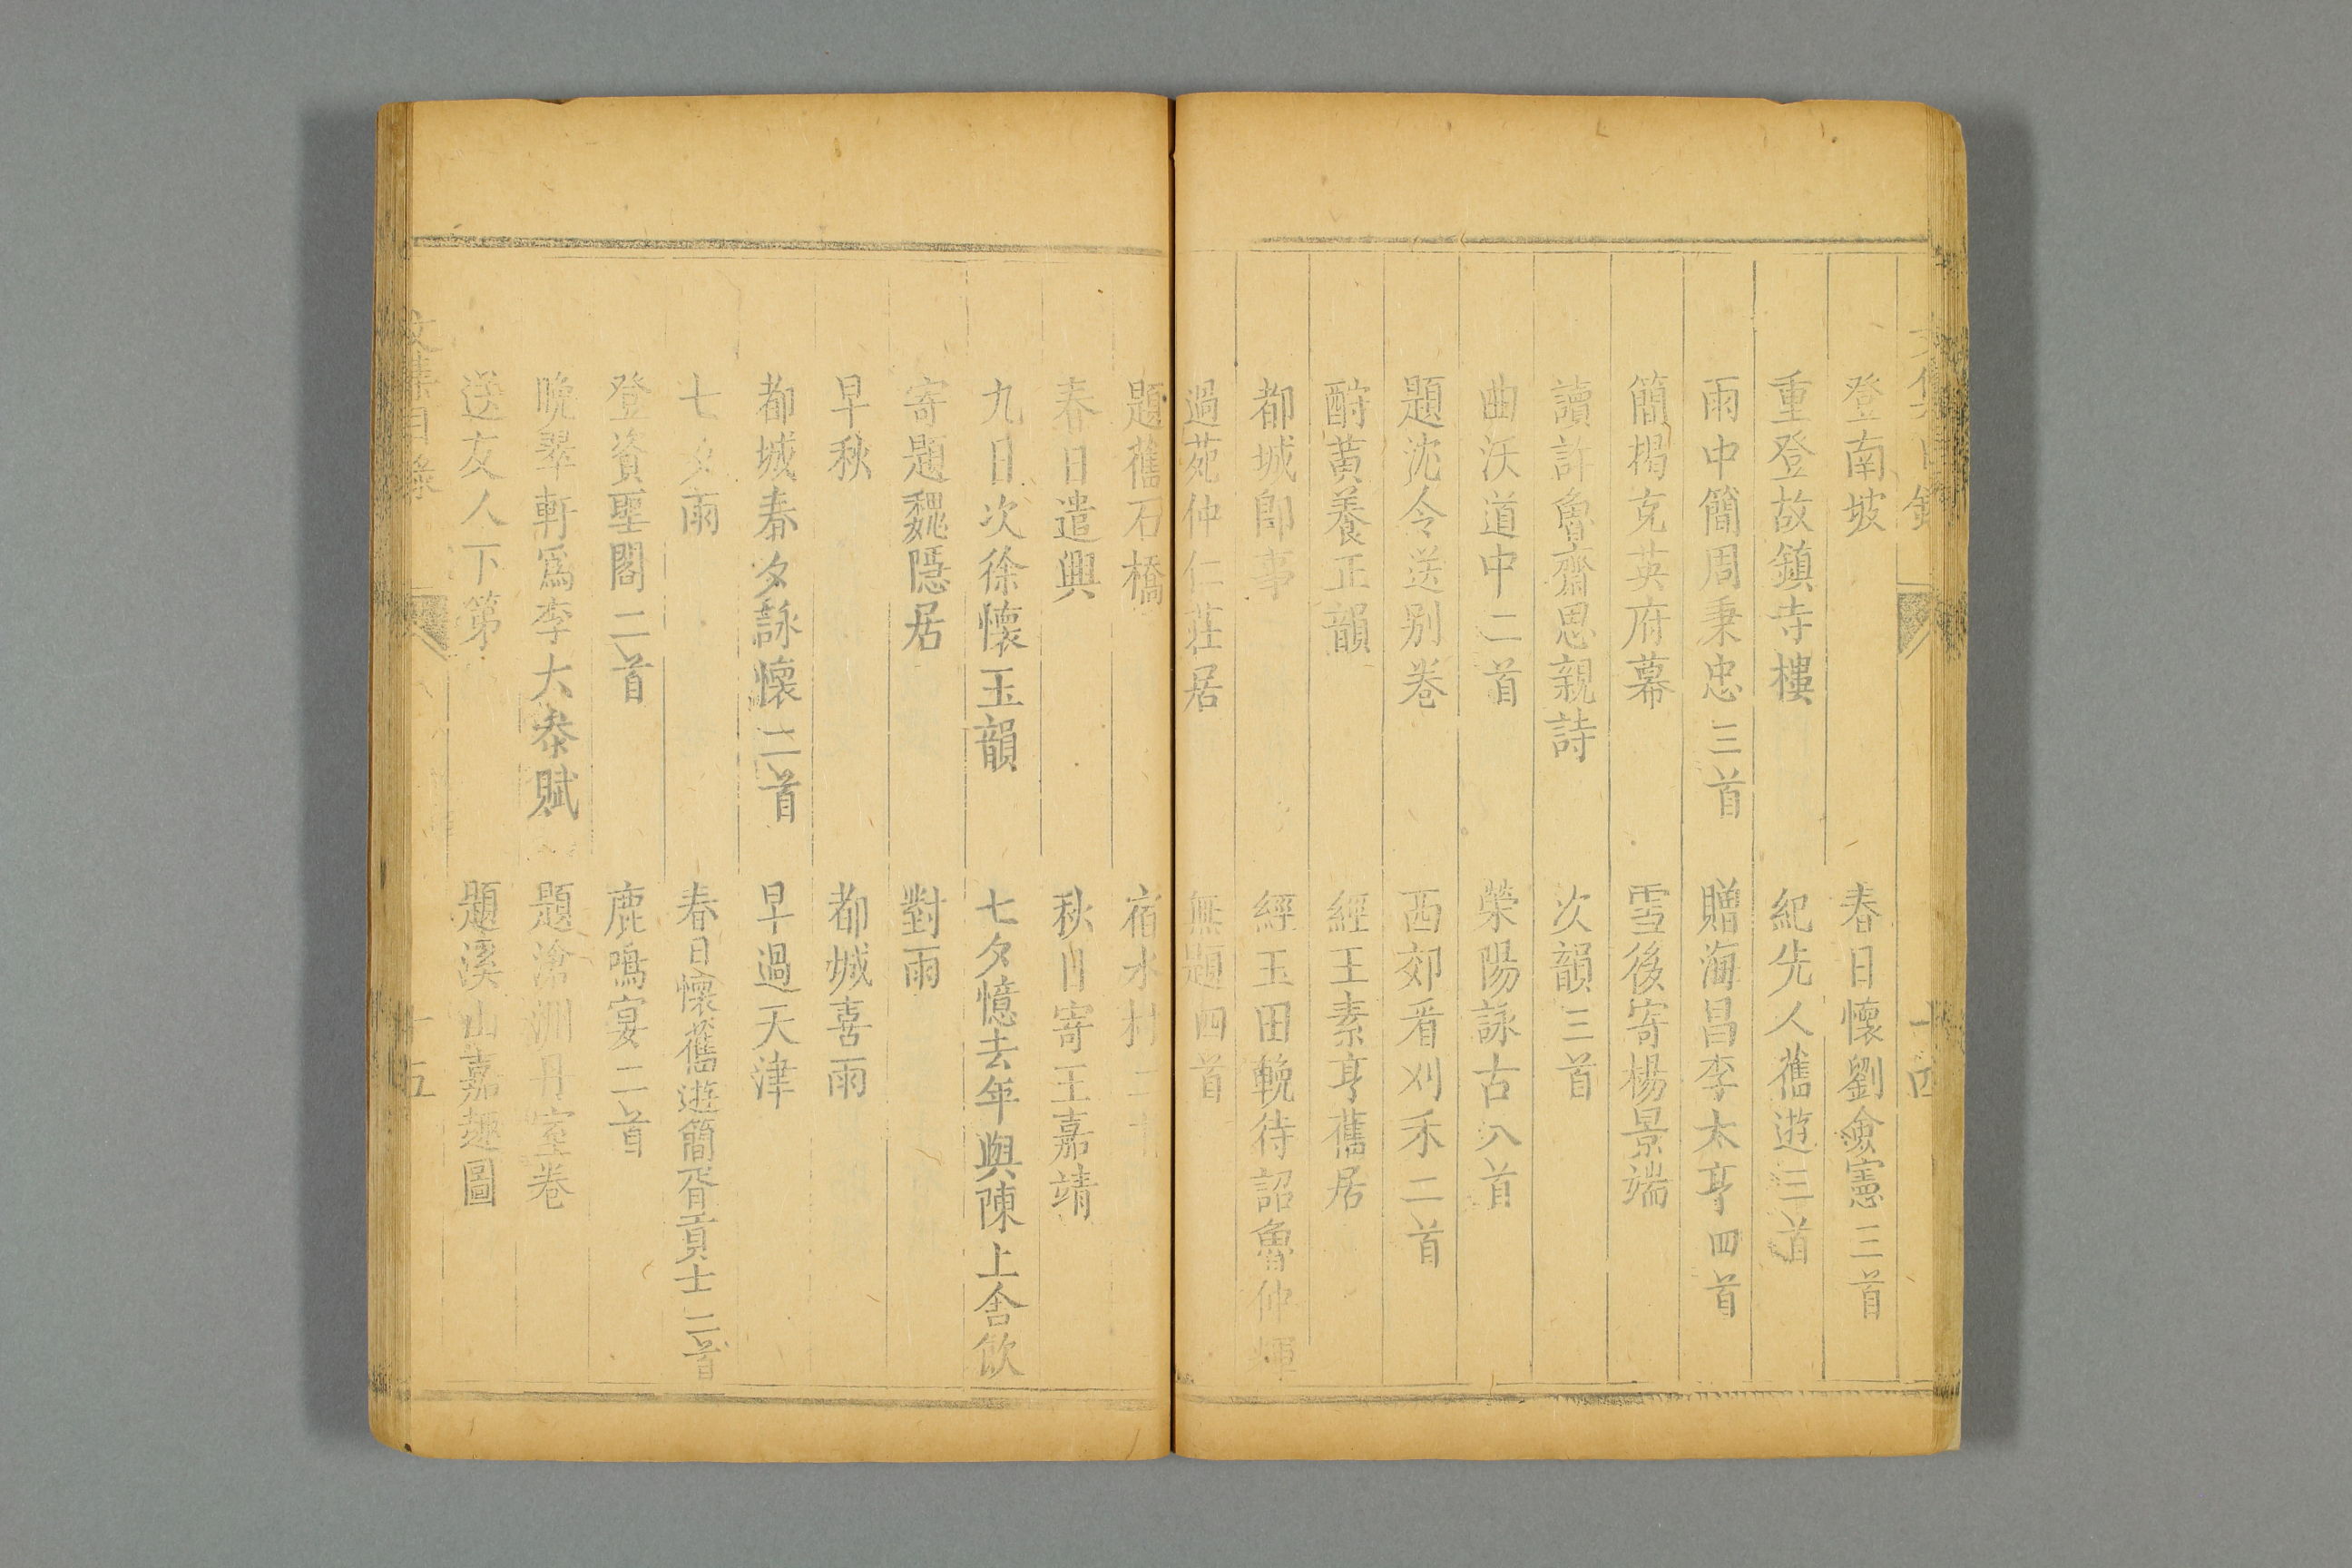 登南坡　春日懷劉僉憲三首
重登故鎮寺樓　紀先人舊遊三首
雨中簡周秉忠三首　贈海昌李太亨四首
簡楊克英府幕　雪後寄楊景端
讀許魯齋思親詩　次韻三首
曲沃道中二首　滎陽詠古八首
題沈令送别卷　西郊看刈禾二首
酧黄養正韻　經王素亨舊居
都城即事　經玉田輓待詔魯仲輝
過苑仲仁莊居　無題四首
題舊石橋　宿水村二首
春日遣興　秋日寄王嘉靖
九日次徐懷玉韻　七夕憶去年與陳上舍飲
寄題魏隱居　對雨
早秋　都城喜雨
都城春夕詠懷二首　早過天津
七夕雨　春日懷舊遊簡胥貢士二首
登資聖閣二首　鹿鳴宴二首
晚翠軒爲李大叅賦　題滄洲丹室卷
送友人下第　題溪山嘉趣圖
文集目錄　十五